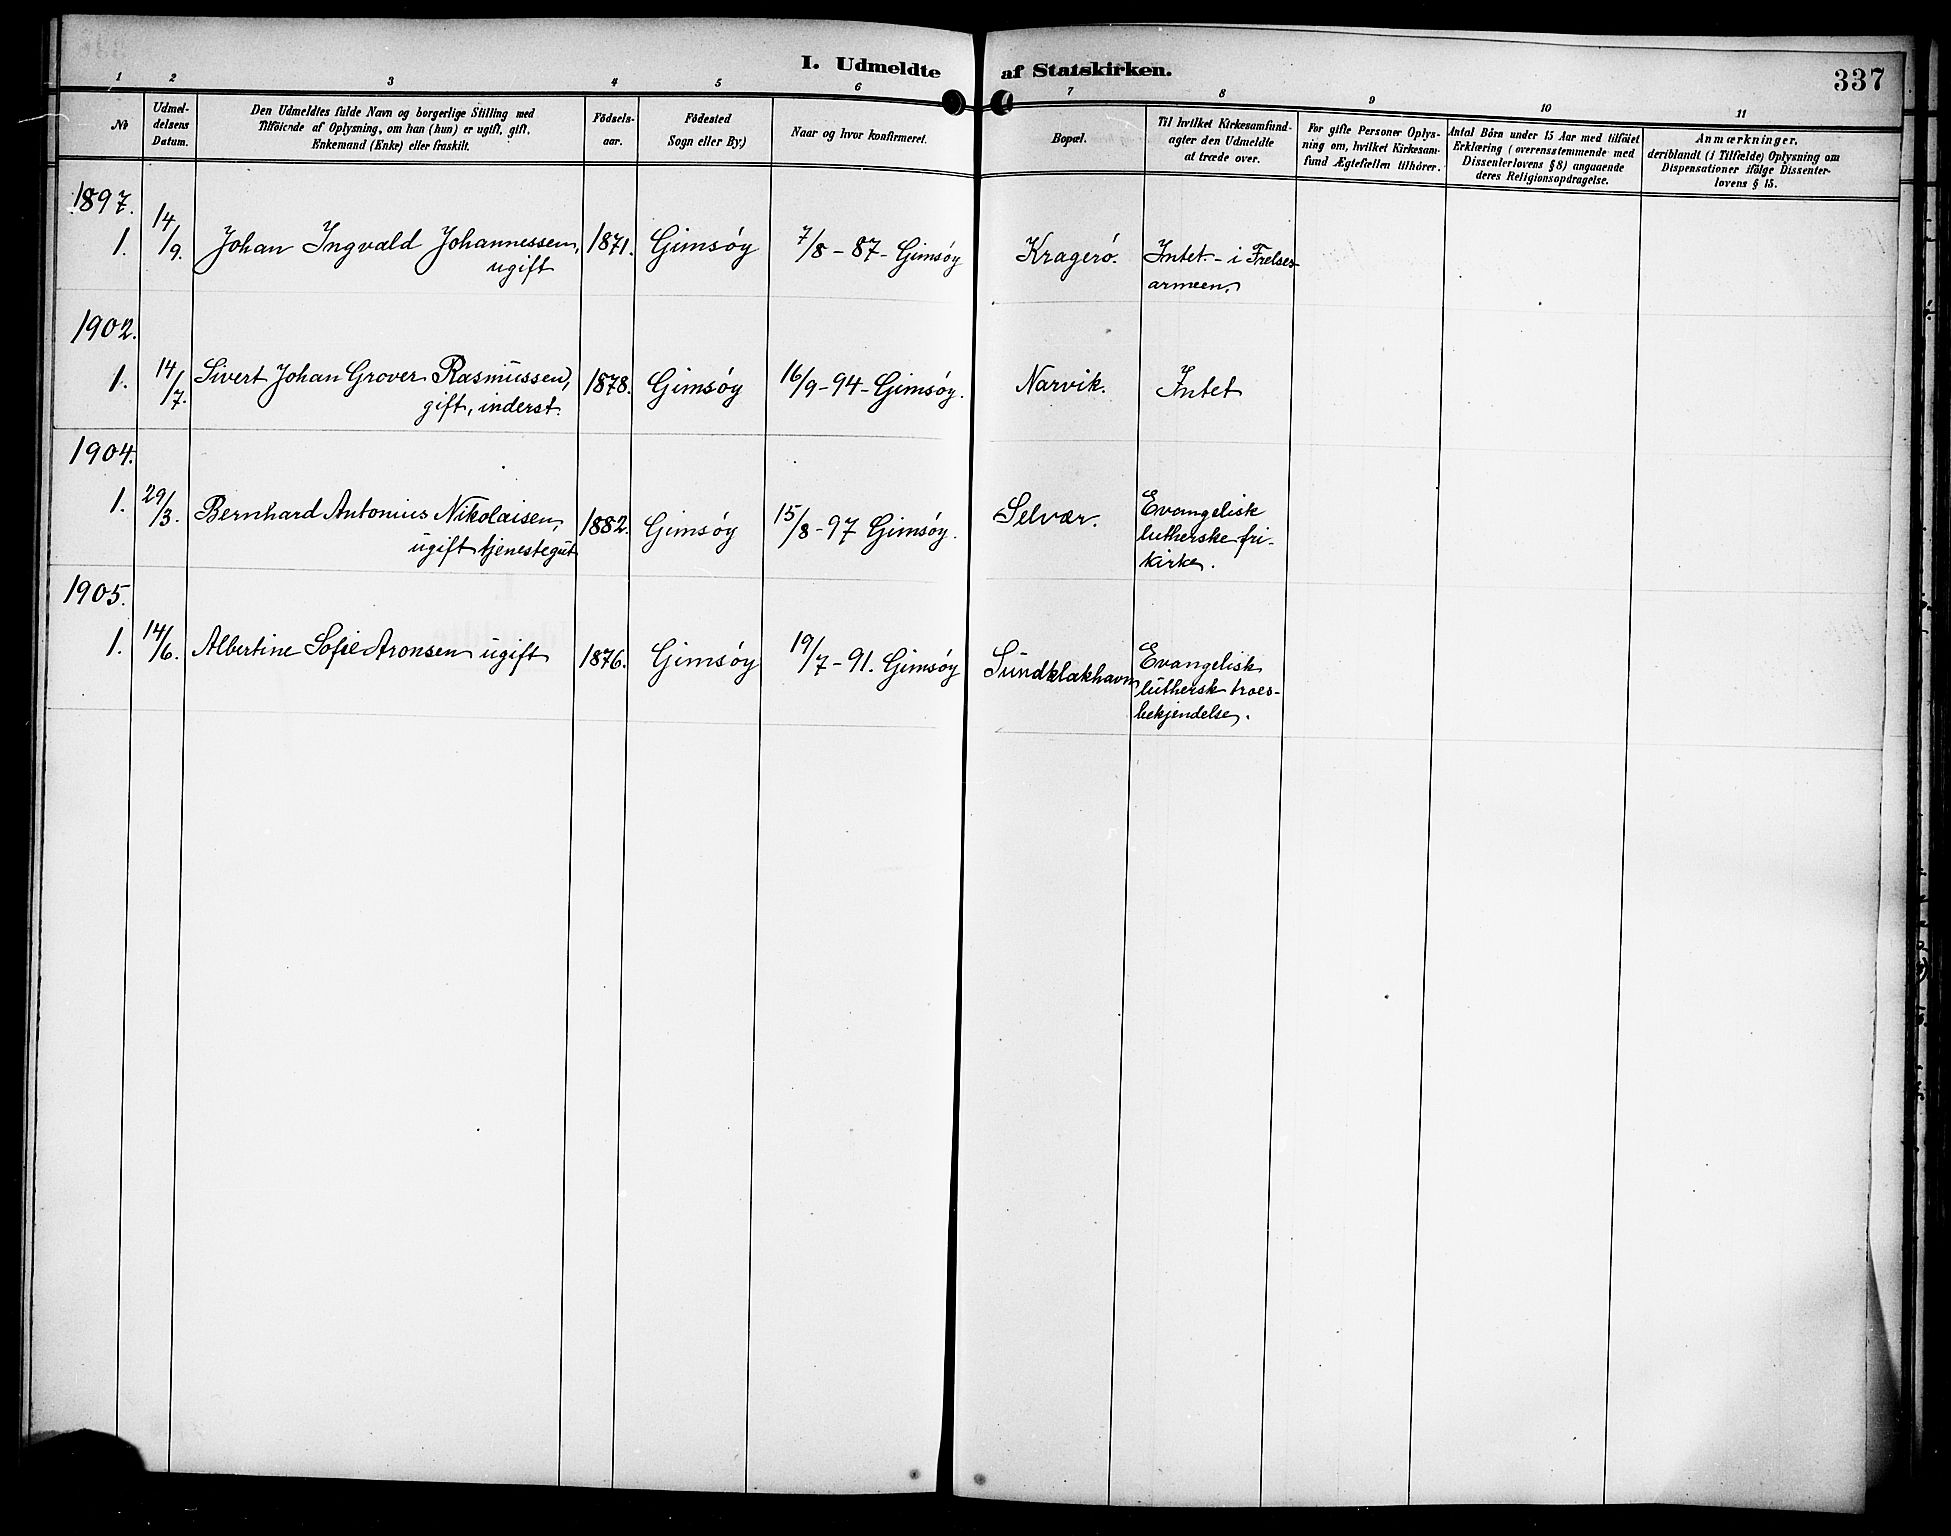 I. Udmeldte af Statskirken.
337
1 2 3 4 5 6 7 8 9 10 11
No
Udmel-
delsens
Datum.
Den Udmeldtes fulde Navn og borgerlige Stilling med
Tilföiende af Oplysning, om han (hun) er ugift, gift,
Enkemand (Enke) eller fraskilt.
Födsels-
aar.
Födested
Sogn eller By.)
Naar og hvor konfirmeret.
Bopæl.
Til hvilket Kirkesamfund-
agter den Udmeldte
at træde over.
For gifte Personer Oplys-
ning om, hvilket Kirkesam-
fund Ægtefællen tilhörer.
Antal Börn under 15 Aar med tilföiet
Erklæring (overensstemmende med
Dissenterlovens § 8) angaaende
deres Religionsopdragelse.
Anmærkninger,
deriblandt (i Tilfælde) Oplysning om
Dispensationer ifölge Dissenter-
lovens § 15.
1897.
1. 14/9. Johan Ingvald Johannessen, 1871. Gimsøy 7/8-87- Gimsøy Kragerø. Intet - i Frelses
ugift armeen.
1902.
1. 14/7. Sivert Johan Grover Rasmussen, 1878. Gimsøy 16/9-94-Gimsøy. Narvik. Intet
gift, inderst.
1904.
1. 29/3. Bernhard Antonius Nikolaisen, 1882. Gimsøy 15/8-97 Gimsøy. Selvær. Evangelisk
ugift tjenestegut lutherske fri-
kirke.
1905.
1. 14/6. Albertine Sofie Aronsen ugift 1876. Gimsøy 19/7-91. Gimsøy Sundklakhavn Evangelisk
luthersk troes-
bekjendelse.